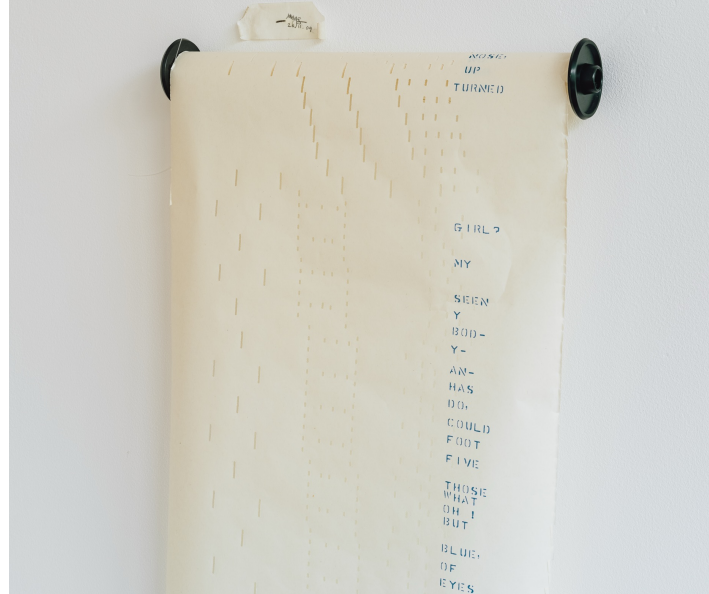 NOSE,
UP
TURNED
GIRL?
MY
SEEN
Y
BOD-
Y-
AN-
HAS
DO,
COULD
FOOT
FIVE
THOSE
WHAT
OH !
BUT
BLUE,
OF
EYES